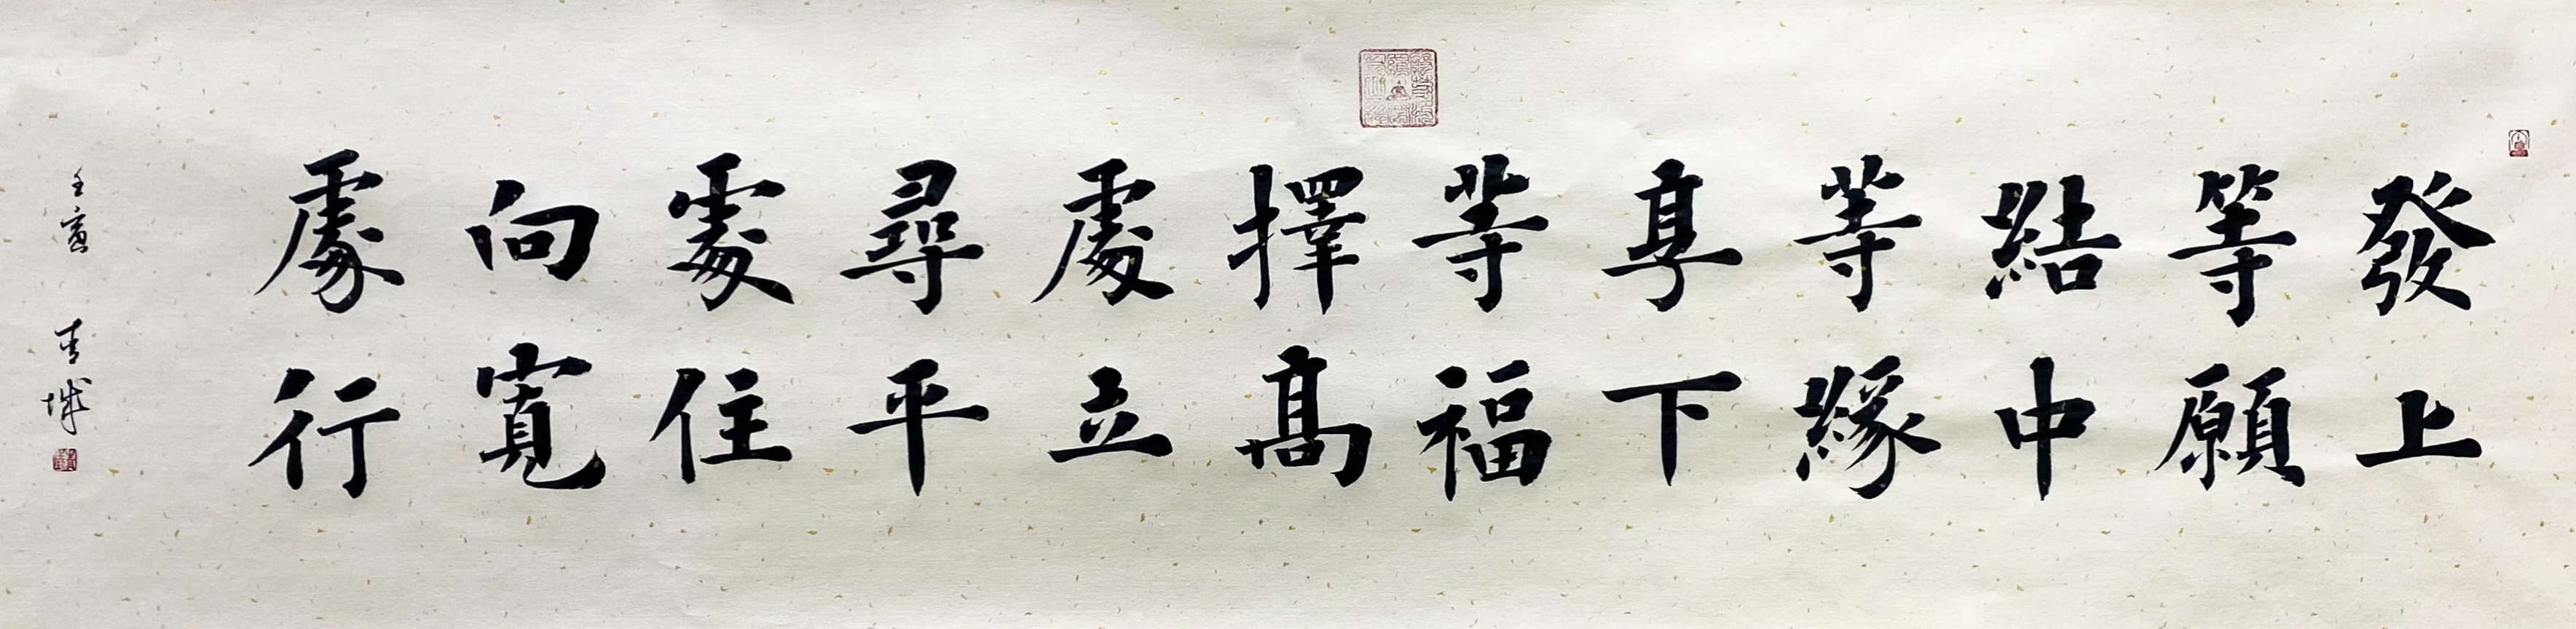 發上
等願
結中
等緣
享下
等福
擇高
處立
尋平
處住
向寬
處行
壬寅 青城